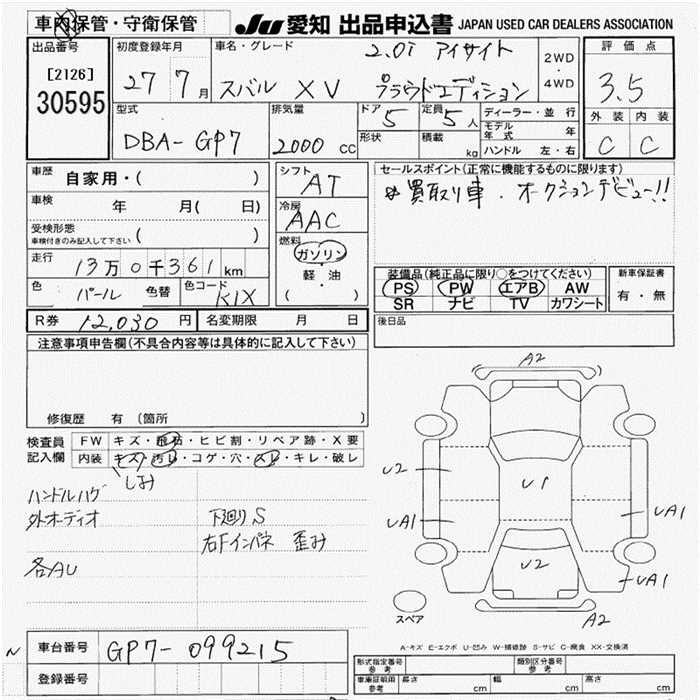 車内保管・守衛保管 JU 愛知 出品申込書 JAPAN USED CAR DEALERS ASSOCIATION
出品番号 初度登録年月 車名・グレード 2.0i アイサイト 2WD・4WD 評価点
[2126]
30595 27 7月 スバル XV プラウドエディション 3.5
型式 排気量 ドア 5 定員 5人 ディーラー・並行 外装 内装
DBA-GP7 2000 CC 形状 積載 kg モデル年式 年 C C
ハンドル 左・右
車歴 自家用・( ) シフト AT セールスポイント(正常に機能するものに限ります)
車検 年 月( 日) 冷房 AAC ☆買取り車・オークションデビュー!!
受検形態 ( )
車検付きのみ記入して下さい
燃料 ガソリン
軽・油
( )
走行 13万0千361km
色 パール 色替 色コード K1X
装備品(純正品に限り○をつけてください) 新車保証書
PS PW エアB AW 有・無
SR ナビ TV カワシート
R券 12,030 円 名変期限 月 日 後日品
注意事項申告欄(不具合内容等は具体的に記入して下さい)
修復歴 有 (箇所 )
検査員 FW キズ・飛石・ヒビ割・リペア跡・X要
記入欄 内装 キズ・汚レ・コゲ・穴・スレ・キレ・破レ
しみ
ハンドルハゲ
外オーディオ 下廻りS
右Fインパネ 歪み
各AU
A2
U2 U1
UA1 UA1
U2 UA1
スペア A2
A-キズ E-エクボ U-凹み W-補修跡 S-サビ C-腐食 XX-交換済
車台番号 GP7-099215
登録番号
形式指定番号 参考 類別区分番号 参考
車庫証明用 参考 長さ cm 幅 cm 高さ cm